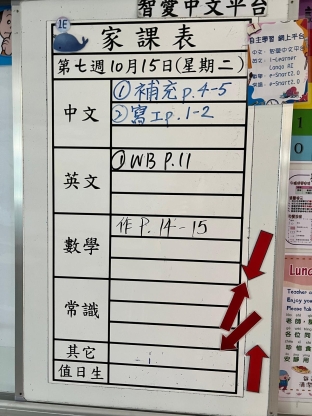 智愛中文平台
1E
家課表
第七週10月15日(星期二)
中文
①補充p.4-5
②寫工p.1-2
英文
①WB P.11
數學
作P.14-15
常識
其它
值日生
自主學習 網上平台
中文：智愛中文平台
英文：i-Learner
Lango AI
數學：e-Smart2.0
常識：e-Smart2.0
1
0
Lunc
Teacher a
Enjoy you
Please tak